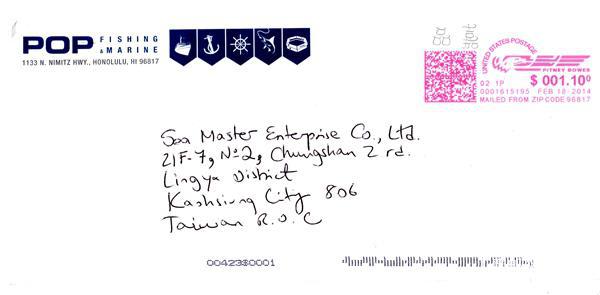 POP FISHING & MARINE
1133 N. NIMITZ HWY., HONOLULU, HI 96817
UNITED STATES POSTAGE
PITNEY BOWES
$ 001.10⁰
02 1P
0001615195 FEB 18 2014
MAILED FROM ZIP CODE 96817
Sea Master Enterprise Co., Ltd.
21F-7, No 2, Chungshan 2 rd.
Lingya District
Kaohsiung City 806
Taiwan R.O.C
00423$0001